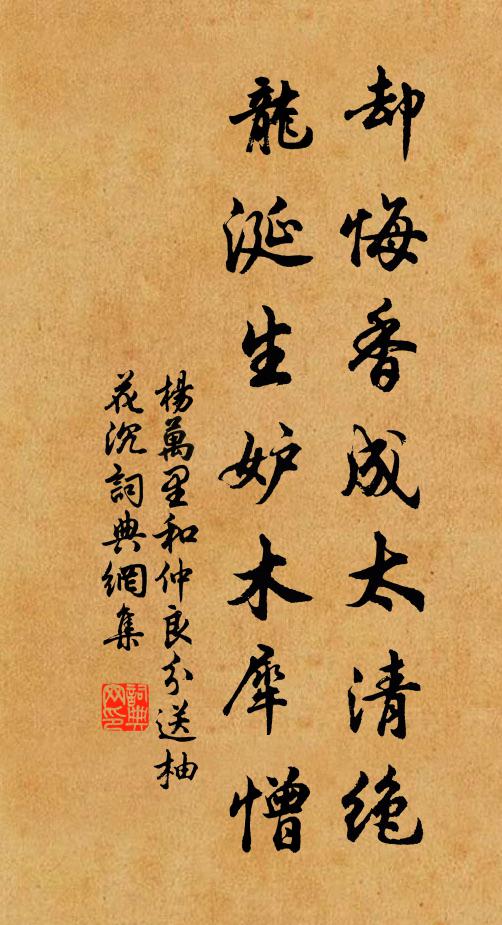 却悔香成太清绝
龍涎生妒木犀憎
楊萬里和仲良分送柚
花沉詞典網集
詞典
网印